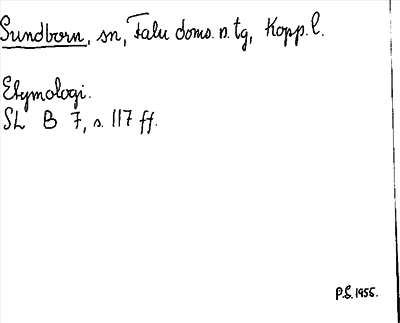 Sundborn, sn, Falu doms. n. tg, Kopp. l.
Etymologi.
SL B 7, s. 117 ff.
P.S. 1955.